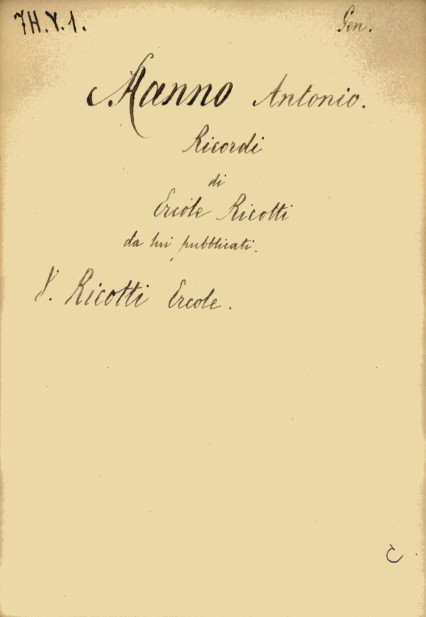 7H.Y.1. Gen.
Manno Antonio.
Ricordi
di
Ercole Ricotti
da lui pubblicati.
V. Ricotti Ercole.
C.